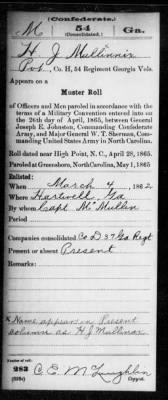 (Confederate.)
M 54 Ga.
(Consolidated.)
H J Mullinnix
Pvt., Co. H, 54 Regiment Georgia Vols.
Appears on a
Muster Roll
of Officers and Men paroled in accordance with the
terms of a Military Convention entered into on
the 26th day of April, 1865, between General
Joseph E. Johnston, Commanding Confederate
Army, and Major General W. T. Sherman, Com-
manding United States Army in North Carolina.
Roll dated near High Point, N. C., April 28, 1865.
Paroled at Greensboro, North Carolina, May 1, 1865
Enlisted:
When March 4, 1862
Where Hartwell Ga
By whom Capt McMullin
Period
Companies consolidated Co D 37 Ga Regt
Present or absent Present
Remarks:
* Name appears in Present
column as H J Mullinax
Number of roll:
283 C. E. McLaughlin
Copyist.